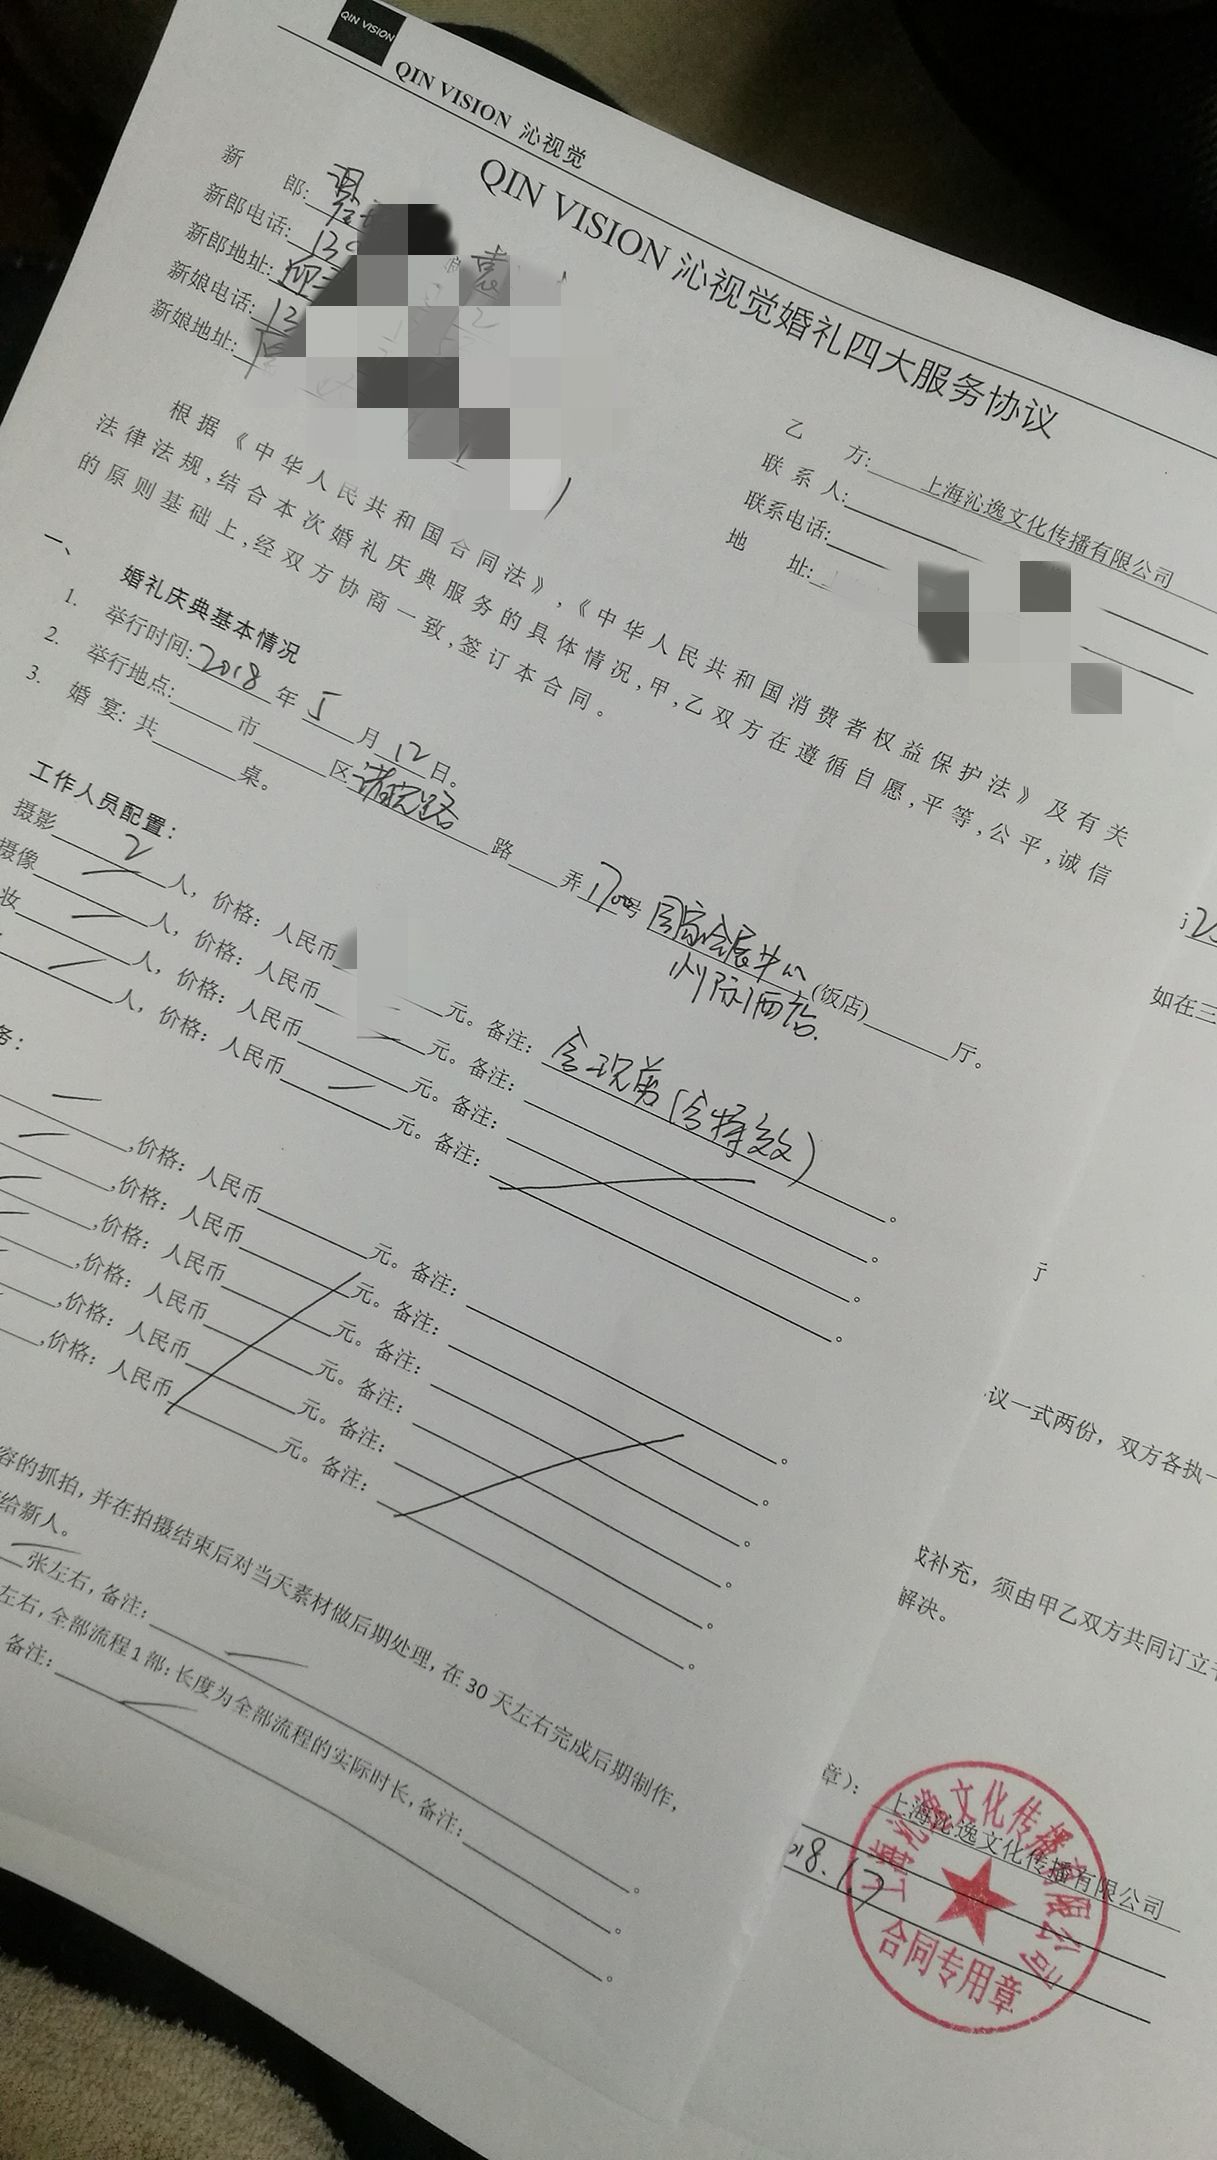 QIN VISION
QIN VISION 沁视觉
QIN VISION 沁视觉婚礼四大服务协议
新 郎:
新郎电话: 130
新郎地址:
新娘电话: 1
新娘地址:
乙 方: 上海沁逸文化传播有限公司
联 系 人:
联系电话:
地 址:
根据《中华人民共和国合同法》,《中华人民共和国消费者权益保护法》及有关
法律法规,结合本次婚礼庆典服务的具体情况,甲,乙双方在遵循自愿,平等,公平,诚信
的原则基础上,经双方协商一致,签订本合同。
一、 婚礼庆典基本情况
1. 举行时间: 2018 年 5 月 12 日。
2. 举行地点: 市 区 路 弄 1700 号 国家会展中心洲际酒店 (饭店) 厅。
3. 婚 宴: 共 桌。
工作人员配置:
摄影 2 人, 价格: 人民币 元。备注: 含现剪(含特效)。
摄像 人, 价格: 人民币 元。备注: 。
妆 人, 价格: 人民币 元。备注: 。
人, 价格: 人民币 元。备注: 。
务:
,价格: 人民币 元。备注: 。
,价格: 人民币 元。备注: 。
,价格: 人民币 元。备注: 。
,价格: 人民币 元。备注: 。
,价格: 人民币 元。备注: 。
,价格: 人民币 元。备注: 。
容的抓拍, 并在拍摄结束后对当天素材做后期处理, 在30天左右完成后期制作,
给新人。
张左右, 备注: 。
左右, 全部流程1部: 长度为全部流程的实际时长, 备注: 。
备注: 。
如在三
行
议一式两份, 双方各执一
或补充, 须由甲乙双方共同订立
解决。
章): 上海沁逸文化传播有限公司
18.1.7
上海沁逸文化传播有限公司
合同专用章